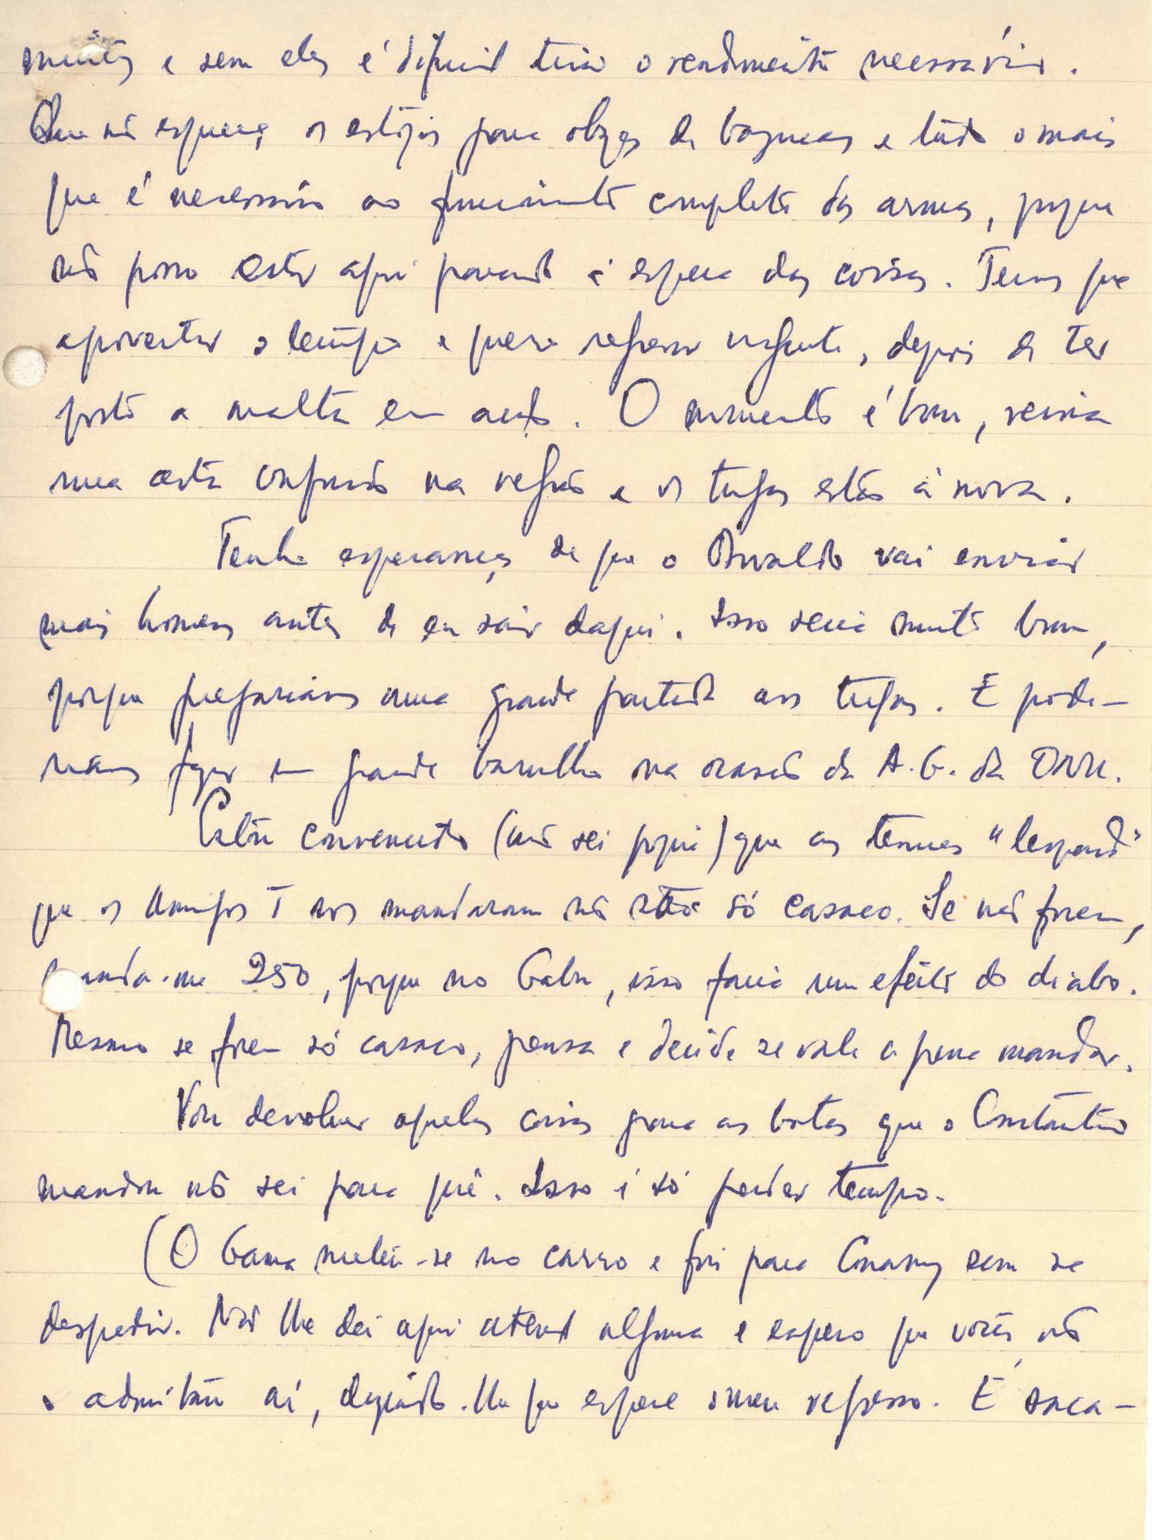 muitos e sem eles é difícil tirar o rendimento necessário.
Que não esqueças os estojos para obuzes de bazucas e tudo o mais
que é necessário ao funcionamento completo das armas, porque
não posso estar aqui parado à espera das coisas. Temos que
aproveitar o tempo e quero regressar urgente, depois de ter
posto a malta em acção. O momento é bom, reina
uma certa confusão na região e os tugas estão à nora.
Tenho esperanças de que o Osvaldo vai enviar
mais homens antes de eu sair daqui. Isso seria muito bom,
porque pregaríamos uma grande partida aos tugas. E pode-
ríamos fazer um grande barulho na ocasião da A.G. da ONU.
Estou convencido (não sei porquê) que as tenues "leopard"
que os Amigos I nos mandaram não são só casaco. Se não forem,
manda-me 250, porque no Gabu, isso faria um efeito do diabo.
Mesmo se forem só casaco, pensa e decide se vale a pena mandar.
Vou devolver aquelas coisas para as botas que o Constantino
mandou não sei para quê. Isso é só perder tempo.
(O Gama meteu-se no carro e foi para Conakry sem se
despedir. Não lhe dei aqui atenção alguma e espero que vocês não
o admitam aí, dizendo-lhe que espere o meu regresso. É saca-